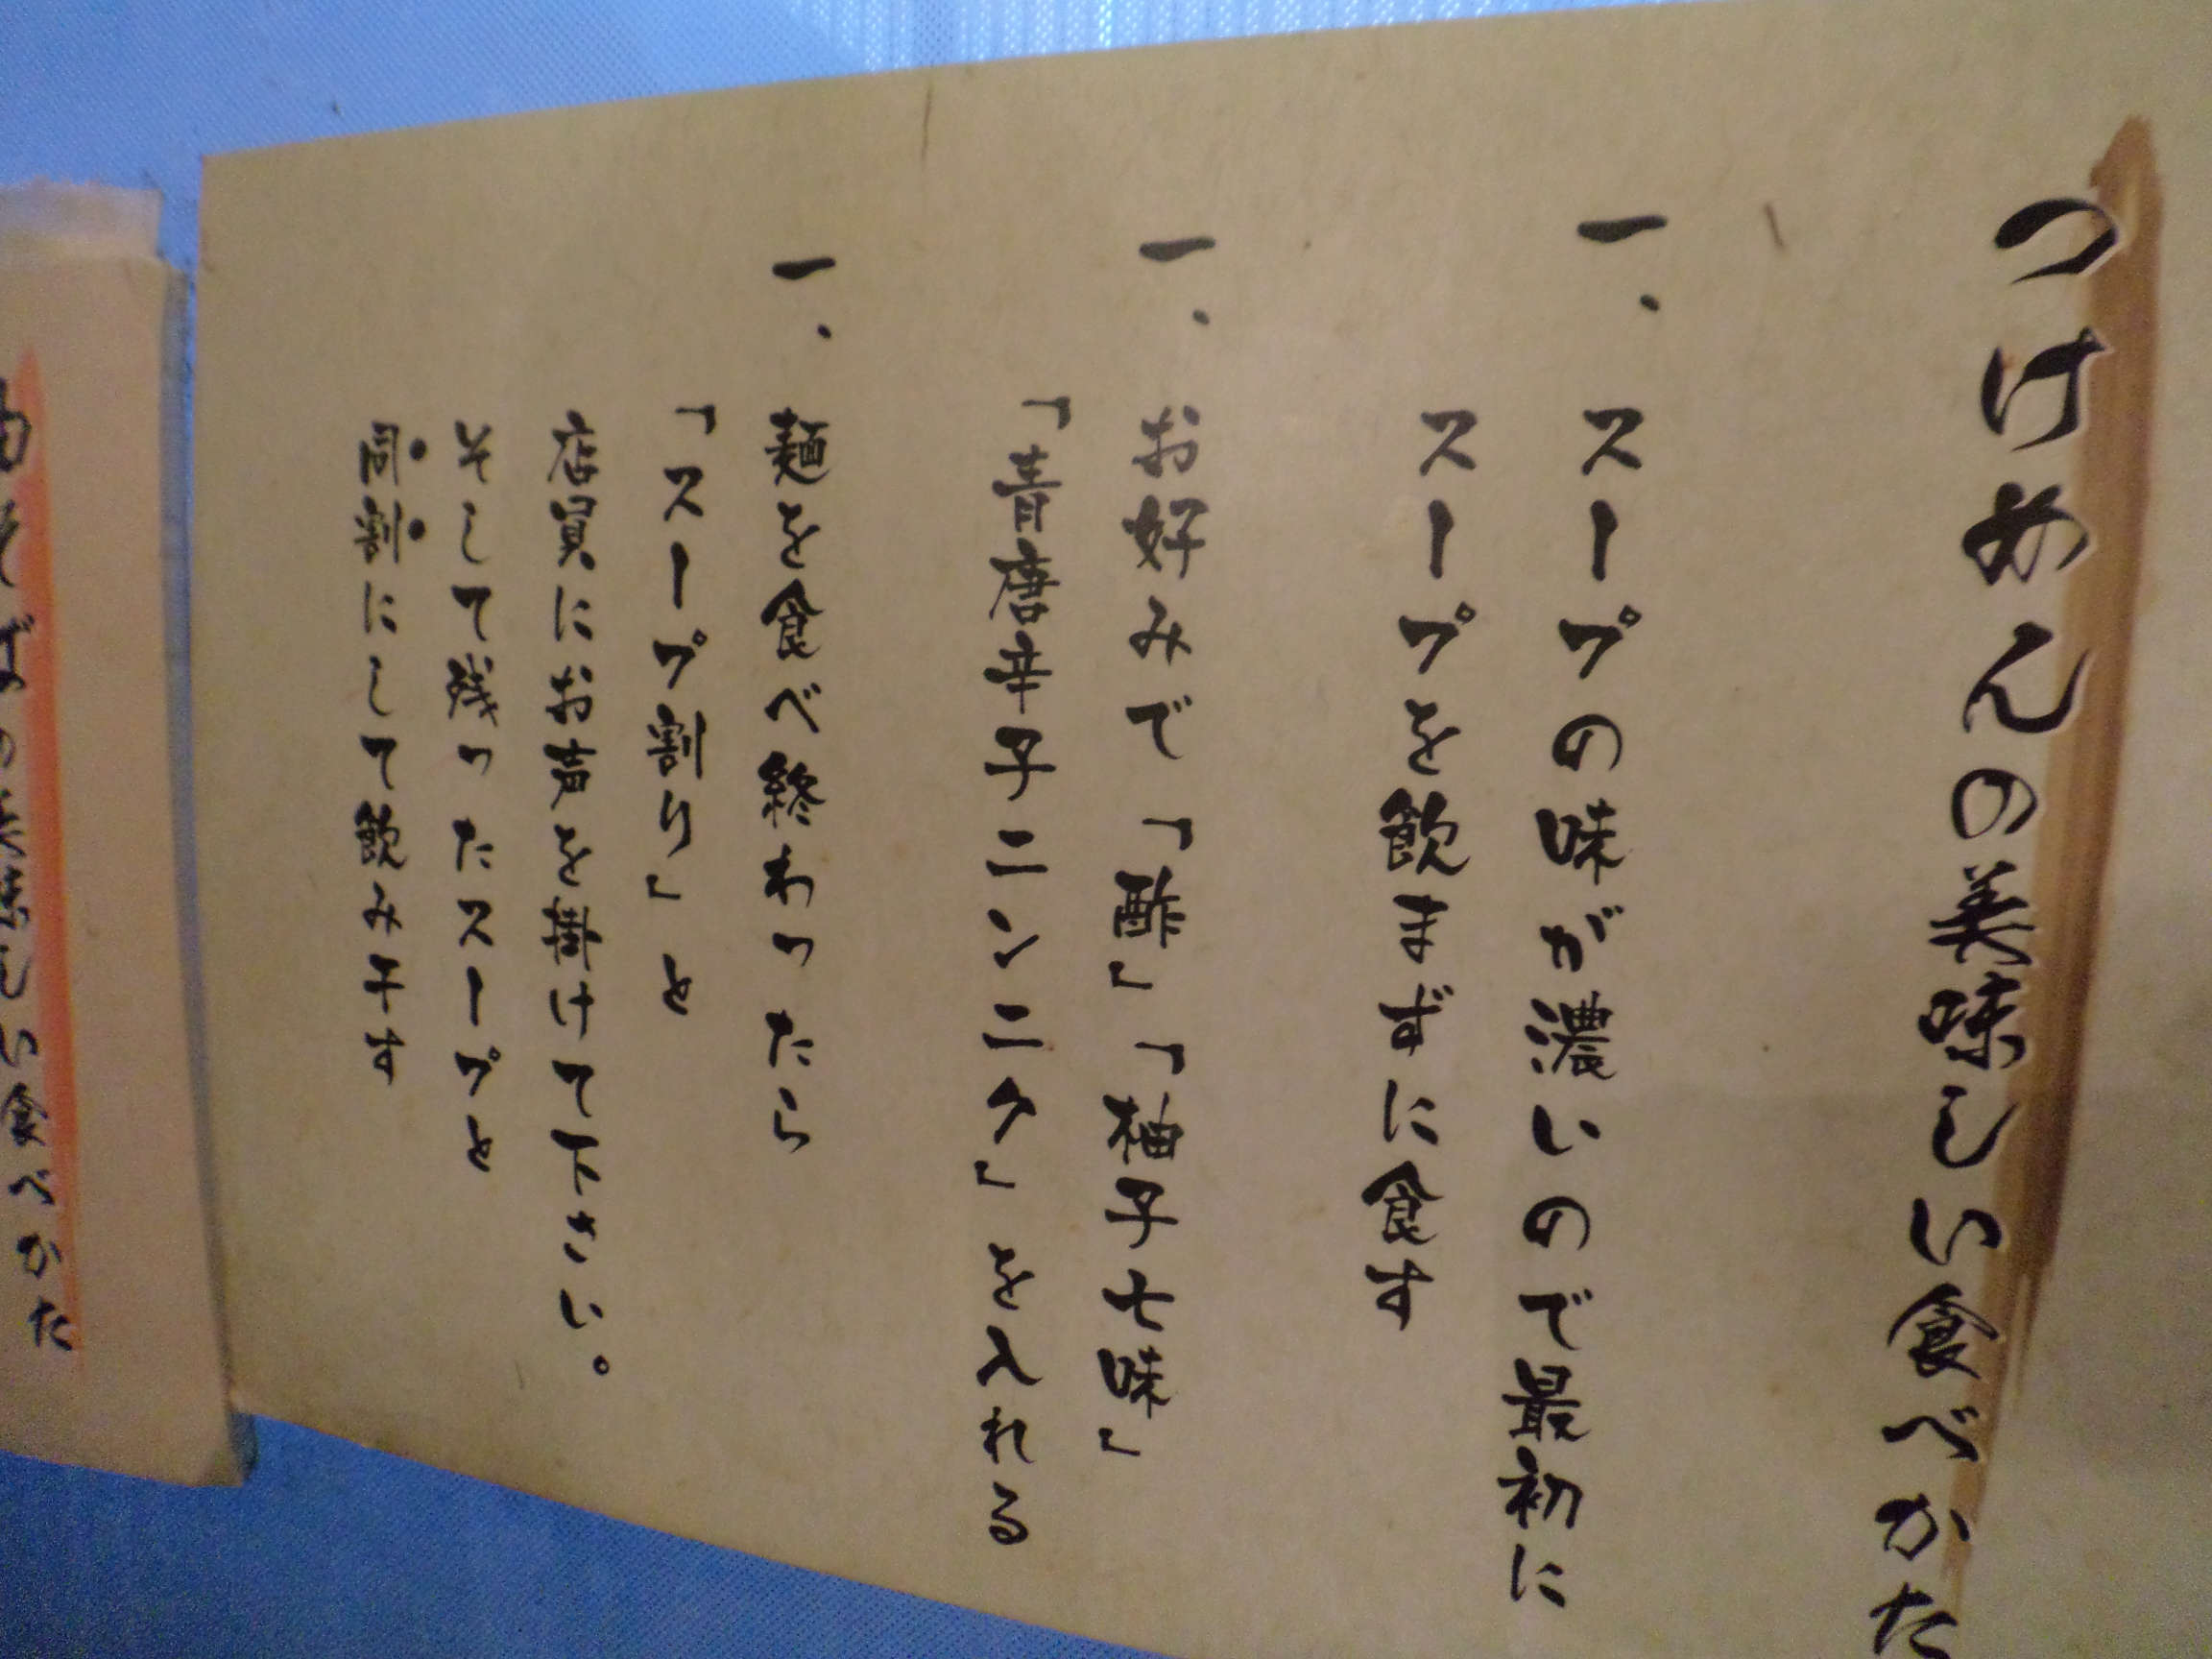 つけめんの美味しい食べかた
一、スープの味が濃いので最初に
スープを飲まずに食す
一、お好みで「酢」「柚子七味」
「青唐辛子ニンニク」を入れる
一、麺を食べ終わったら
「スープ割り」と
店員にお声を掛けて下さい。
そして残ったスープと
同割にして飲み干す
そばの美味しい食べかた